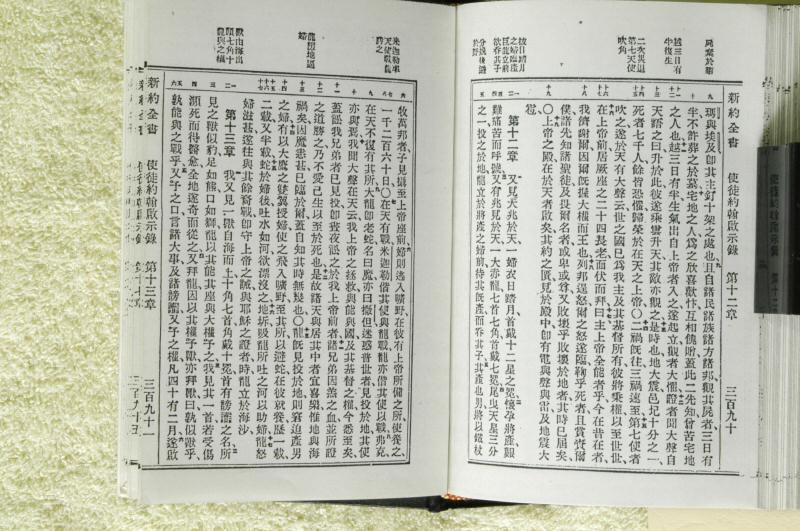 新約全書 使徒約翰啟示錄 第十二章 三百九十
屍棄於衢
越三日有
半復生
二次災退
第七天使
吹角
披日踏月
之婦臨產
巨龍立前
欲吞其子
分娩後避
於野
瑪與埃及卽其主釘十架之處也且自諸民諸族諸方諸邦觀其屍者三日有
半不許葬之於墓宅地之人爲之欣喜歡忭互相餽贈蓋此二先知曾苦宅地
之人也越三日有半生氣出自上帝者入之遂起立觀者大懼證者聞大聲自
天語之曰升於此彼遂乘雲升天其敵亦觀之是時也地大震邑圮十分之一
死者七千人餘皆恐懼歸榮於在天之上帝○二禍旣往三禍速至第七使者
吹之遂於天有大聲云世之國已爲我主及其基督所有彼將秉權以至世世
在上帝前居厥座之二十四長老面伏而拜曰主上帝全能者乎今在昔在者、
我儕謝爾因爾旣握大權而王也列邦逞怒爾之怒遂臨鞫乎死者且賞賚爾
僕諸先知諸聖徒及畏爾名者或卑或尊又敗壞乎敗壞於地者其時已屆矣
○上帝之殿在於天者啟矣其約之匱見於殿中卽有電與聲與雷及地震大
雹
第十二章 又見大兆於天一婦衣日踏月首戴十二星之冕懷孕將產艱
難痛苦而呼號又有兆見於天一大赤龍七首十角首戴七冕尾曳天星三分
之一投之於地龍立於將產之婦前俟其旣產而吞其子其產也男將以鐵杖
米迦勒率
天使戰龍
勝之
龍窘迫逼
婦
獸由海出
七首十角
龍與之權
牧萬邦者子見攝至上帝座前婦則逃入曠野在彼有上帝所備之所使養之
一千二百六十日○在天有戰米迦勒偕其使與龍戰龍亦偕其使以戰弗克
在天不復有其所大龍卽老蛇名曰魔亦曰撒但迷惑普世者見投於地其使
亦與焉我聞大聲在天云我上帝之拯救與能與國及其基督之權今悉至矣
蓋訟我兄弟者已見投卽晝夜訟之於我上帝前者諸兄弟因羔之血並所證
之道勝之乃不愛己生以至於死也是故諸天與居其中者宜喜樂惟地與海
禍矣因魔恚甚已臨於爾蓋自知其時無幾也○龍旣見投於地則窘迫產男
之婦有以大鷹之雙翼授婦使之飛入曠野至其所以避蛇在彼就養歷一載
二載又半載蛇於婦後吐水如河欲漂沒之地坼吸龍所吐之河以助婦龍怒
婦滋甚遂往與其餘裔戰卽守上帝之誡與耶穌之證者時龍立於海沙
第十三章 我又見一獸自海而上十角七首角戴十冕首有謗讟之名所
見之獸似豹足如熊口如獅龍以其能其座與大權予之我見其一首若受傷
瀕死而得醫愈全地遂奇而從之又拜龍因以其權予獸亦拜獸曰孰似獸乎
孰能與之戰乎又予之口言諸大事及諸謗讟又予之權凡四十有二月遂啟
新約全書 使徒約翰啟示錄 第十三章 三百九十一